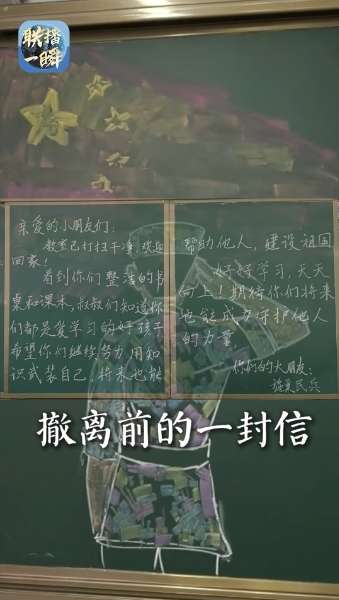 联播
一瞬
亲爱的小朋友们：
教室已打扫干净，欢迎
回家！
看到你们整洁的书
桌和课本，叔叔们知道你
们都是爱学习的好孩子
希望你们继续努力用知
识武装自己，将来也能
帮助他人，建设祖国
好好学习，天天
向上！期待你们将来
也能成为守护他人
的力量。
你们的大朋友：
民兵
撤离前的一封信